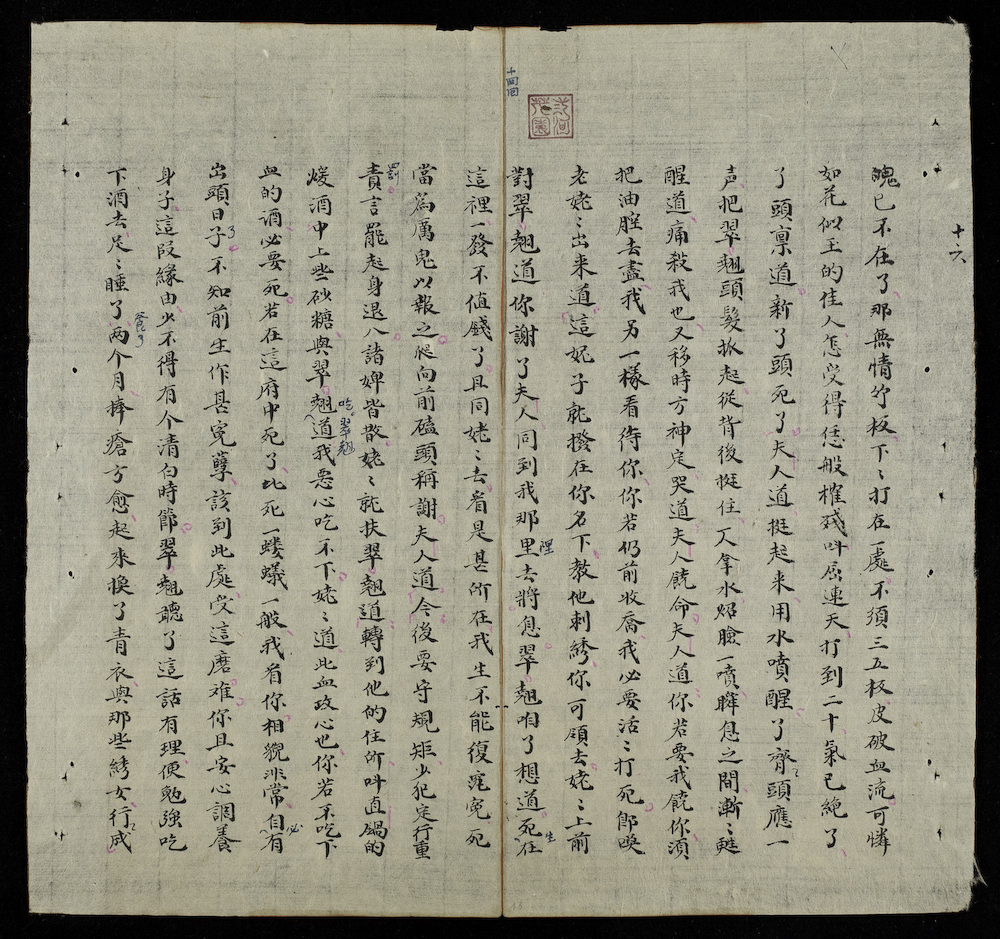 十六
十四回
戎洞花園
魄已不在了那無情竹板下〻打在一處不須三五板皮破血流可憐
如花似玉的佳人怎受得恁般摧殘呌屈連天打到二十氣已絶了
了頭禀道新了頭死了夫人道挺起来用水噴醒了齊頭應一
声把翠翹頭髮抓起從背後挺住一人拿水炤臉一噴瞬息之間漸〻甦
醒道痛殺我也又移時方神定哭道夫人饒命夫人道你若要我饒你須
把油腔去盡我另一樣看待你你若仍前收喬我必要活〻打死郎喚
老姥〻出来道這妮子就撥在你名下教他刺綉你可領去姥〻上前
對翠翹道你謝了夫人同到我那里去將息翠翹咱了想道死在
裡
生
這裡一發不值錢了且同姥〻去看是甚所在我生不能復寃寃死
當爲厲鬼以報之爬向前磕頭稱謝夫人道今後要守規矩少犯定行重
責言罷起身退入諸婢皆散姥〻就扶翠翹道轉到他的住所呌直鍋的
罰
煖酒中上些砂糖與翠翹道我惡心吃不下姥〻道此血攻心也你若不吃下
吃翠翹
血的酒必要死若在這府中死了比死一螻蟻一般我看你相貌非常自有
必
出頭日子不知前生作甚寃孽該到此處受這磨难你且安心調養
身子這段緣由少不得有个清白時節翠翹聽了這話有理便勉强吃
下酒去足〻睡了两个月捧瘡方愈起來換了青衣與那些綉女行成